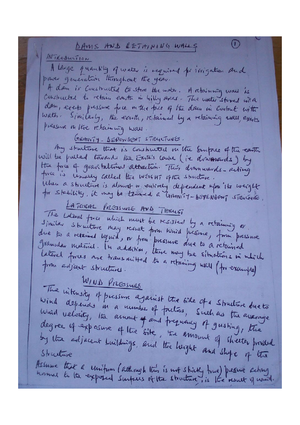 DAMS AND RETAINING WALLS
1
INTRODUCTION
A large quantity of water is required for irrigation and
power generation throughout the year.
A dam is constructed to store the water. A retaining wall is
constructed to retain earth in hilly areas. The water stored with
dam, exerts pressure force on the face of the dam in contact with
water. Similarly, the earth, retained by a retaining wall exerts
pressure on the retaining wall
GRAVITY-DEPENDENT STRUCTURES
Any structure that is constructed on the surface of the earth
will be pulled towards the Earth's centre (i.e downwards) by
the force of gravitational attraction. This downwards-acting
force is usually called the WEIGHT of the structure.
When a structure is almost entirely dependent upon its weight
for stability, it may be termed a "GRAVITY-DEPENDENT" structure.
LATERAL PRESSURE AND THRUST
The lateral force which must be resisted by a retaining or
similar structure may result from wind pressure, from pressure
due to a retained liquid, or from pressure due to a retained
granular material. In addition, there may be situations in which
lateral forces are transmitted to a retaining wall (for example)
from adjacent structures.
WIND PRESSURE
The intensity of pressure against the side of a structure due to
wind depends on a number of factors, such as the average
wind velocity, the amount and frequency of gusting, the
degree of exposure of the site, the amount of shelter provided
by the adjacent buildings, and the height and shape of the
structure
Assume that a uniform (although this is not strictly true) pressure acting
normal to the exposed surface of the structure, is the result of wind.